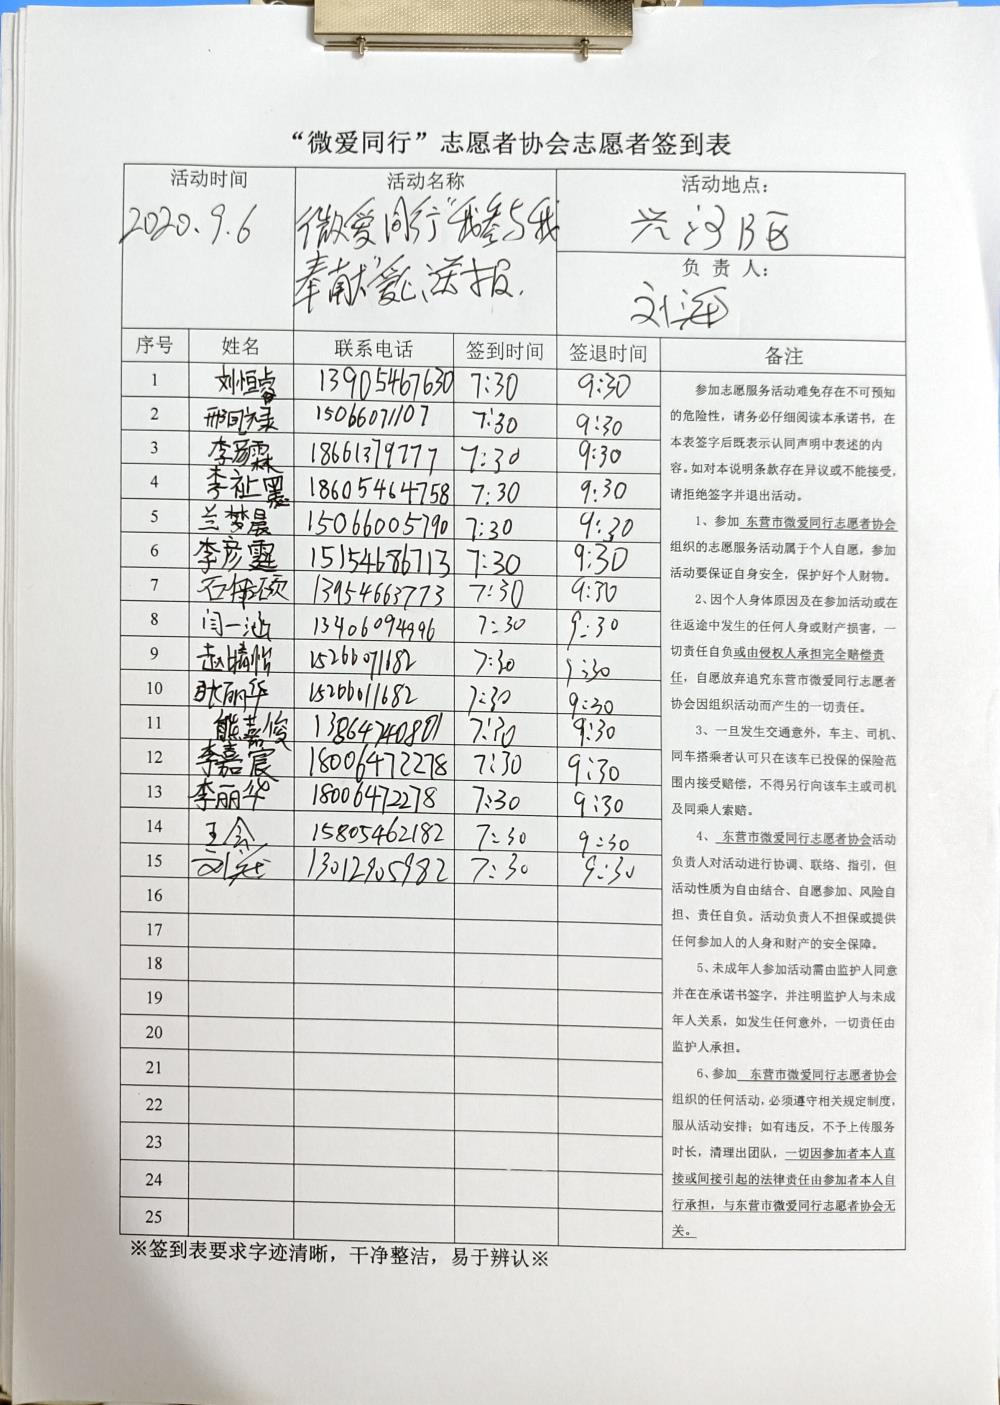 “微爱同行”志愿者协会志愿者签到表
活动时间 活动名称 活动地点：
2020.9.6 微爱同行“我参与我 兴河B区
奉献”爱心送报. 负责人：
刘海
序号 姓名 联系电话 签到时间 签退时间 备注
1 刘恒睿 13905467630 7:30 9:30
2 15066071107 7:30 9:30
3 李彦霖 18661379777 7:30 9:30
4 李祉墨 18605464758 7:30 9:30
5 兰梦晨 15066005790 7:30 9:30
6 李彦霆 15154686713 7:30 9:30
7 13954663773 7:30 9:30
8 闫一涵 13406094996 7:30 9:30
9 赵晴怡 15266071682 7:30 9:30
10 张丽华 7:30 9:30
11 熊嘉俊 7:30 9:30
12 李嘉宸 18006472278 7:30 9:30
13 李丽华 18006472278 7:30 9:30
14 王会 15805462182 7:30 9:30
15 13012905982 7:30 9:30
16
17
18
19
20
21
22
23
24
25
参加志愿服务活动难免存在不可预知
的危险性，请务必仔细阅读本承诺书，在
本表签字后既表示认同声明中表述的内
容。如对本说明条款存在异议或不能接受，
请拒绝签字并退出活动。
1、参加 东营市微爱同行志愿者协会
组织的志愿服务活动属于个人自愿，参加
活动要保证自身安全，保护好个人财物。
2、因个人身体原因及在参加活动或在
往返途中发生的任何人身或财产损害，一
切责任自负或由侵权人承担完全赔偿责
任，自愿放弃追究东营市微爱同行志愿者
协会因组织活动而产生的一切责任。
3、一旦发生交通意外，车主、司机、
同车搭乘者认可只在该车已投保的保险范
围内接受赔偿，不得另行向该车主或司机
及同乘人索赔。
4、 东营市微爱同行志愿者协会活动
负责人对活动进行协调、联络、指引，但
活动性质为自由结合、自愿参加、风险自
担、责任自负。活动负责人不担保或提供
任何参加人的人身和财产的安全保障。
5、未成年人参加活动需由监护人同意
并在在承诺书签字，并注明监护人与未成
年人关系，如发生任何意外，一切责任由
监护人承担。
6、参加 东营市微爱同行志愿者协会
组织的任何活动，必须遵守相关规定制度，
服从活动安排；如有违反，不予上传服务
时长，清理出团队，一切因参加者本人直
接或间接引起的法律责任由参加者本人自
行承担，与东营市微爱同行志愿者协会无
关。
※签到表要求字迹清晰，干净整洁，易于辨认※